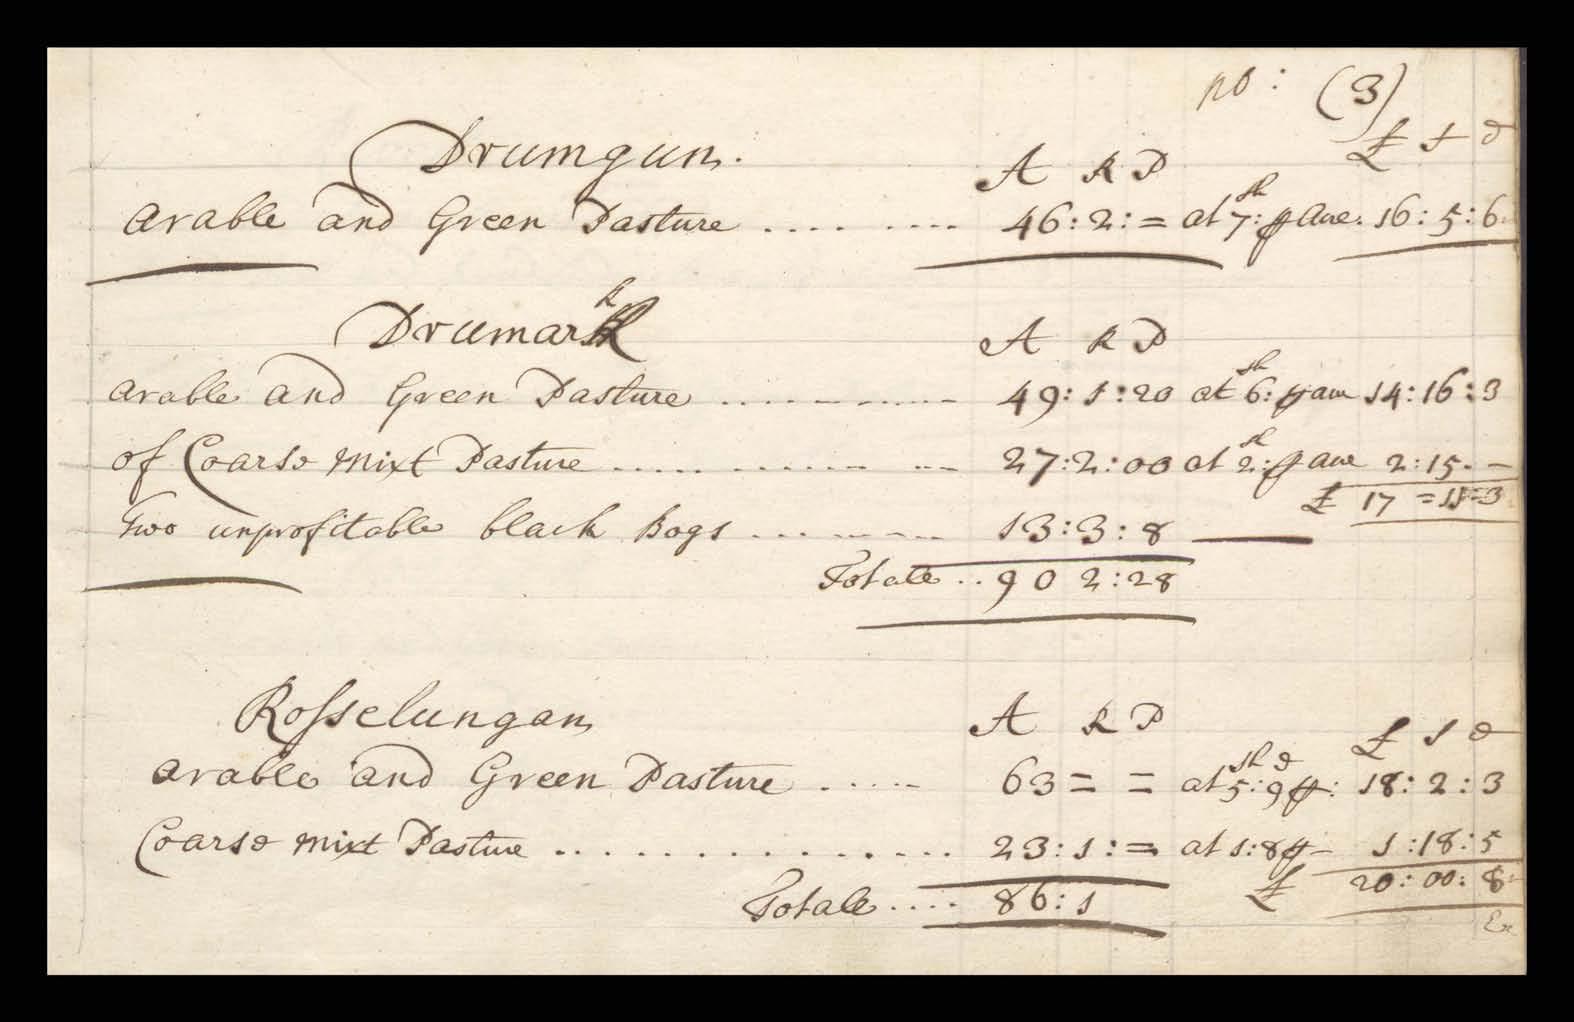 no: (3)
Drumgun. A R P £ s d
arable and Green Pasture .... .... 46:2:= at 7:sh p acre. 16:5:6
Drumark A R P
arable and Green Pasture .......... 49:1:20 at 6:sh p acre 14:16:3
of Coarse Mixt Pasture .......... 27:2:00 at 2:sh p acre 2:15.-
£ 17=11=3
Two unprofitable black Bogs ....... 13:3:8 ——
Totale .. 90 2:28
Rosselungan A R P £ s d
arable and Green Pasture ..... 63 = = at 5:sh 9 d p: 18:2:3
Coarse Mixt Pasture .............. 23:1:= at 1:8 p – 1:18:5
£ 20:00:8
Totale .... 86:1
Ex